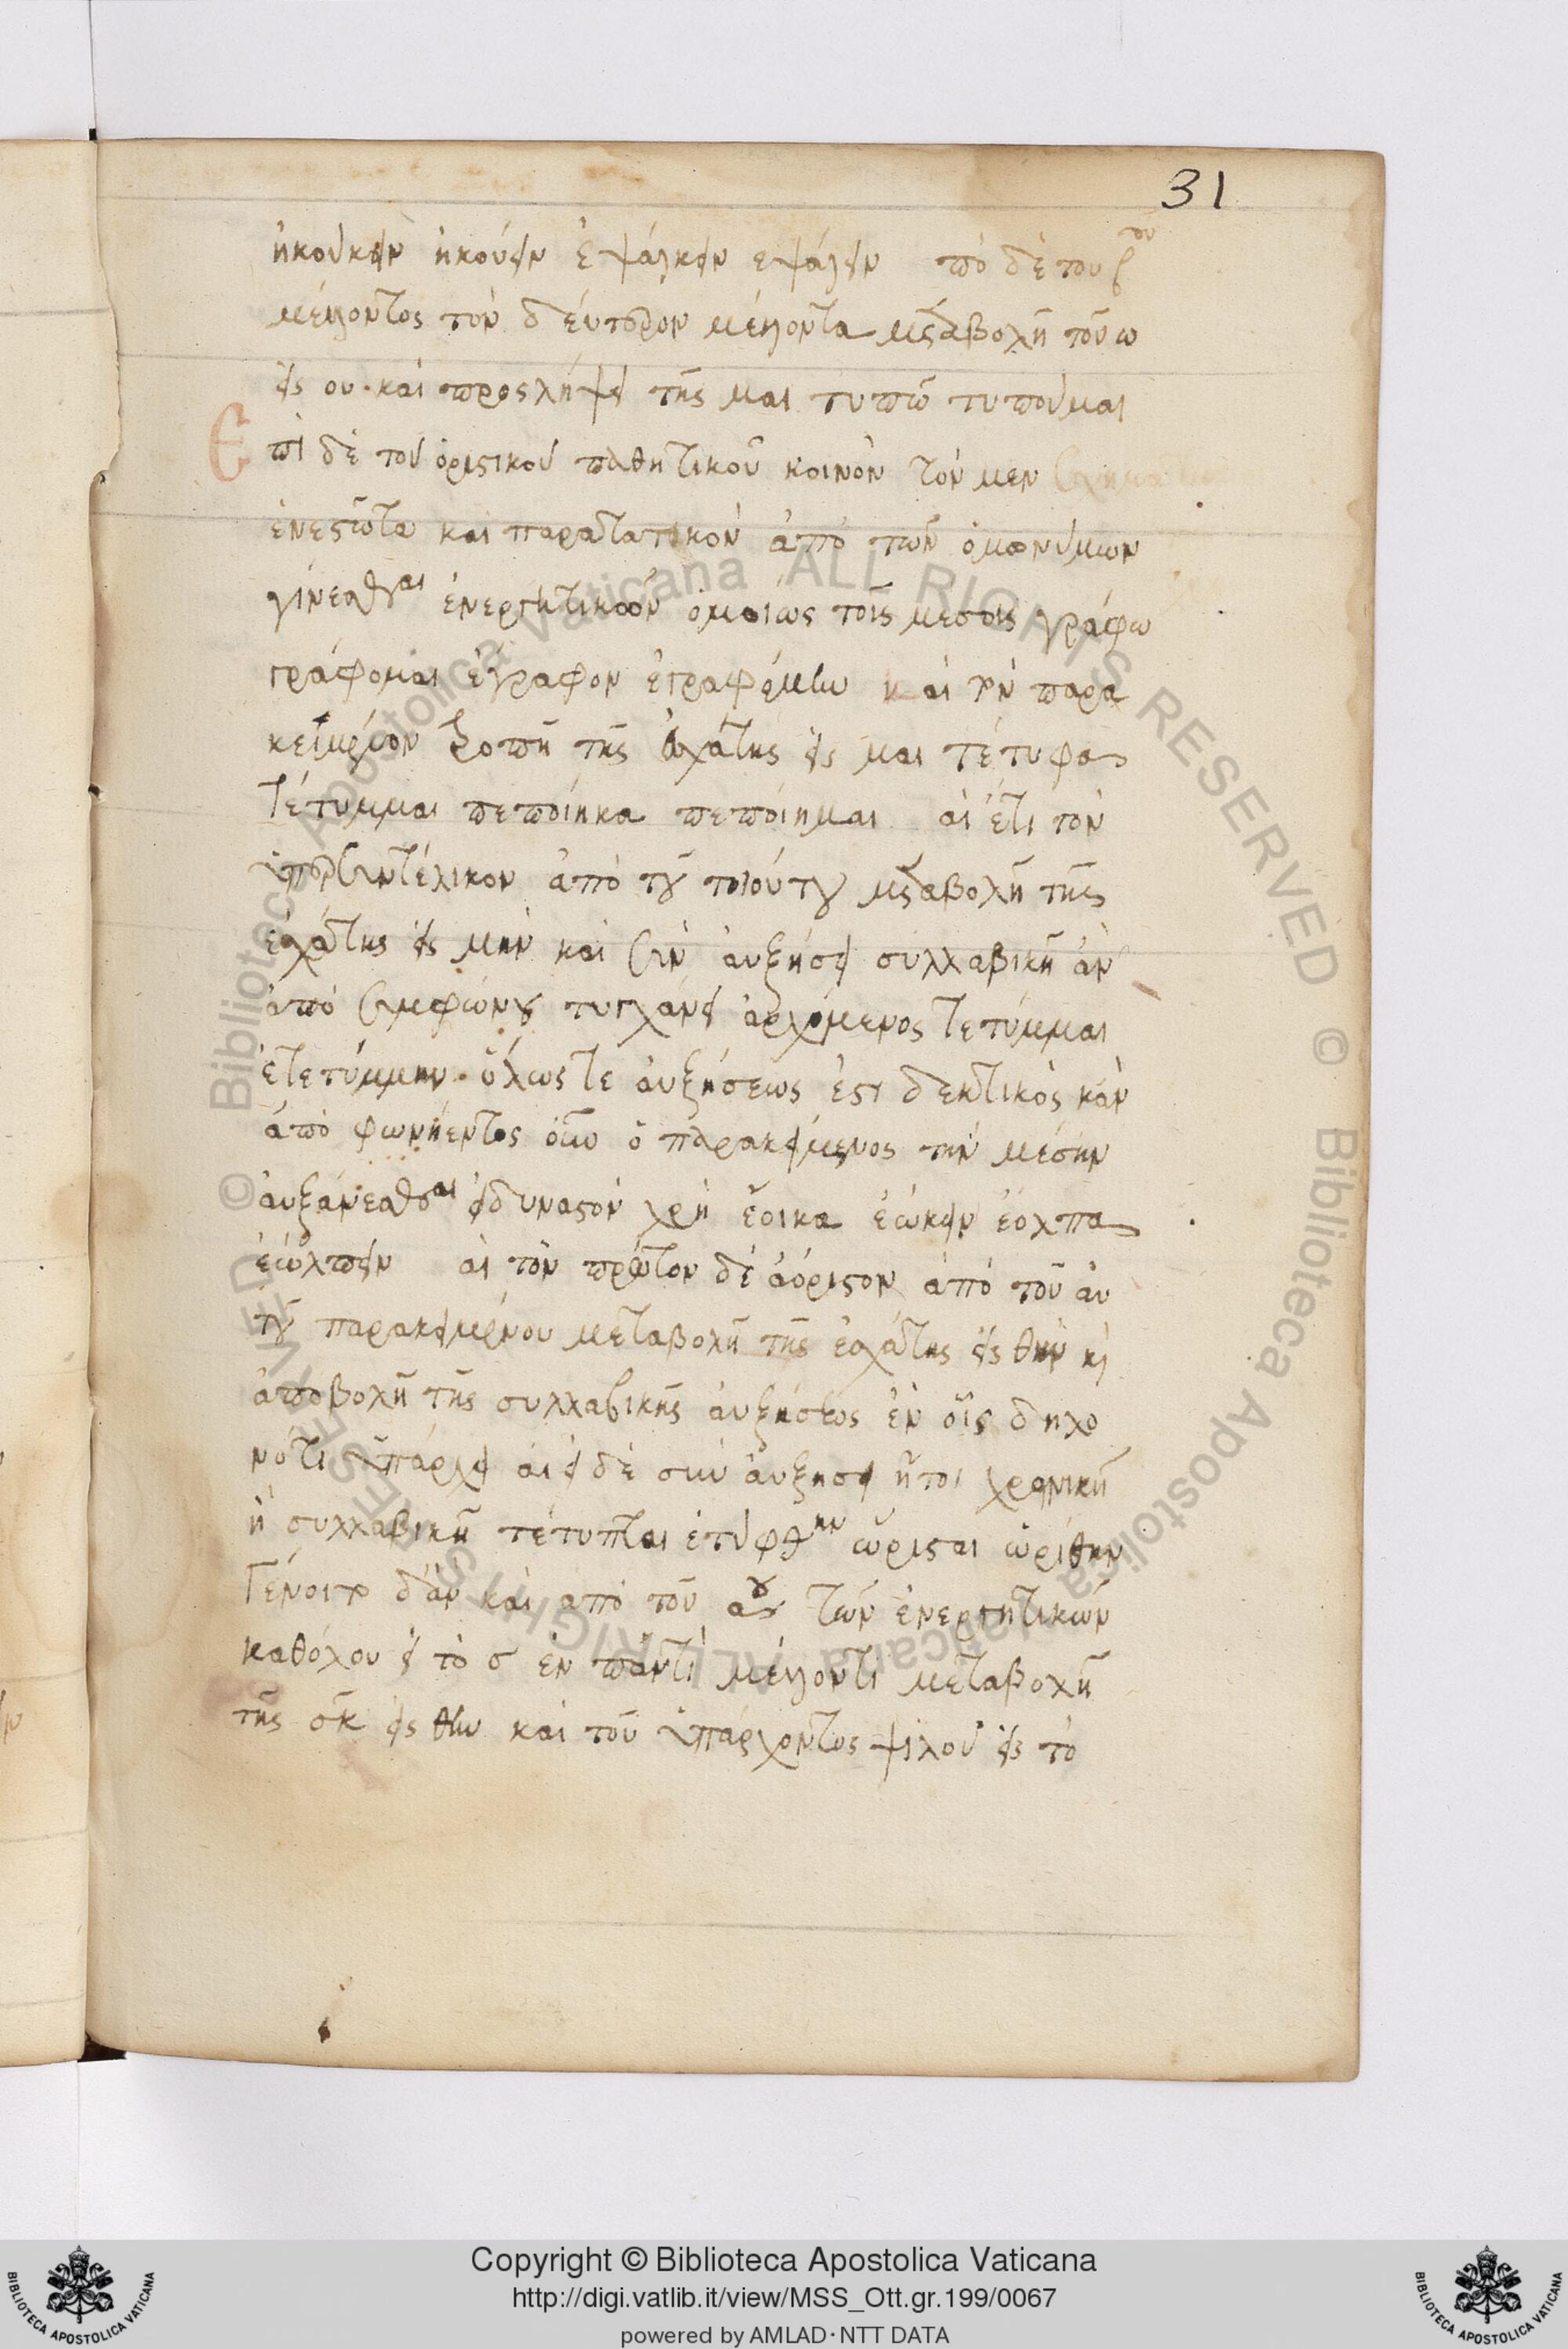 31
ἠκούκειν ἠκούειν ἐψάλκειν εψάλειν πὸ δὲ του β ου
μέλλοντος τὸν δεύτερον μέλλοντα μεταβολῆ τοῦ ω
εἰς ου· καὶ προςλήψει τῆς μαι τυπῶ τυποῦμαι
Επὶ δὲ τοῦ ὁριστικοῦ παθητικοῦ κοινὸν τὸν μεν
ἐνεστῶτα και παρατατικὸν ἀπὸ τῶν ὁμωνύμων
γίνεσθαι ἐνεργητικῶν ὁμοίως τοῖς μεσοις γράφω
γράφομαι ἔγραφον ἐγραφόμην και τὸν παρα
κείμενον τροπῆ τῆς ἐσχάτης εἰς μαι τέτυφα
τέτυμμαι πεποίηκα πεποίημαι αἰ ἔτι τὸν
ὑπερσυντέλικον ἀπὸ τοῦ τοιούτου μεταβολῆ τῆς
ἐσχάτης εἰς μην καὶ σὺν αὐξήσει συλλαβικῆ ἀν
ἀπὸ συμφώνου τυγχάνει ἀρχόμενος τετύμμαι
ἐτετύμμην· ὅλως τε αὐξήσεως ἐστι δεκτικὸς κἀν
ἀπὸ φωνήεντος οἷον ὁ παρακείμενος τὴν μέσην
αὐξάνεσθαι εἰδυνατὸν χρὴ ἔοικα ἐώκειν ἔολπα
ἐώλπειν αἰ τὸν πρῶτον δὲ ἀόριστον ἀπὸ τοῦ αυ
τοῦ παρακειμένου μεταβολῆ τῆς ἐσχάτης εἰς θην κὶ
ἀποβολῆ τῆς συλλαβικῆς αὐξήσεως ἐν οἷς δηλο
νότι ὑπάρχει αἰεὶ δὲ σὺν αὐξησει ἤτοι χρονικῆ
ἢ συλλαβικῆ τέτυπται ἐτύφθην ὥρισται ὡρίσθην
Γένοιτο δ'ἂν καὶ ἀπὸ τοῦ τῶν ἐνεργητικῶν
καθόλου εἰ τὸ σ ἐν παντὶ μέλλοντι μεταβολῆ
τῆς εἰς θην και τοῦ ὑπάρχοντος ψιλοῦ εἰς τὸ
Copyright © Biblioteca Apostolica Vaticana
http://digi.vatlib.it/view/MSS_Ott.gr.199/0067
powered by AMLAD·NTT DATA